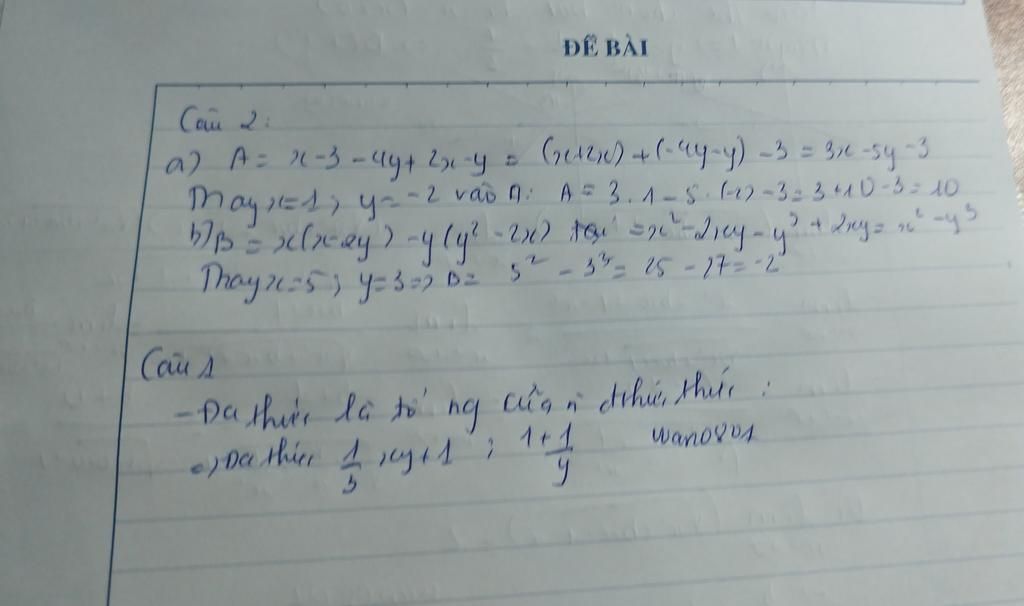 ĐỀ BÀI
Câu 2:
a) A = x - 3 - 4y + 2x - y = (x+2x) + (-4y-y) - 3 = 3x - 5y - 3
Thay x=1; y = -2 vào A: A = 3.1 - 5.(-2) - 3 = 3 + 10 - 3 = 10
b) B = x(x-2y) - y(y² - 2x) = x² - 2xy - y³ + 2xy = x² - y³
Thay x=5; y=3 => B = 5² - 3³ = 25 - 27 = -2
Câu 1
- Đa thức là tổng của thức:
=> Đa thức 1/3 xy + 1 ; 1+1/y wan0801